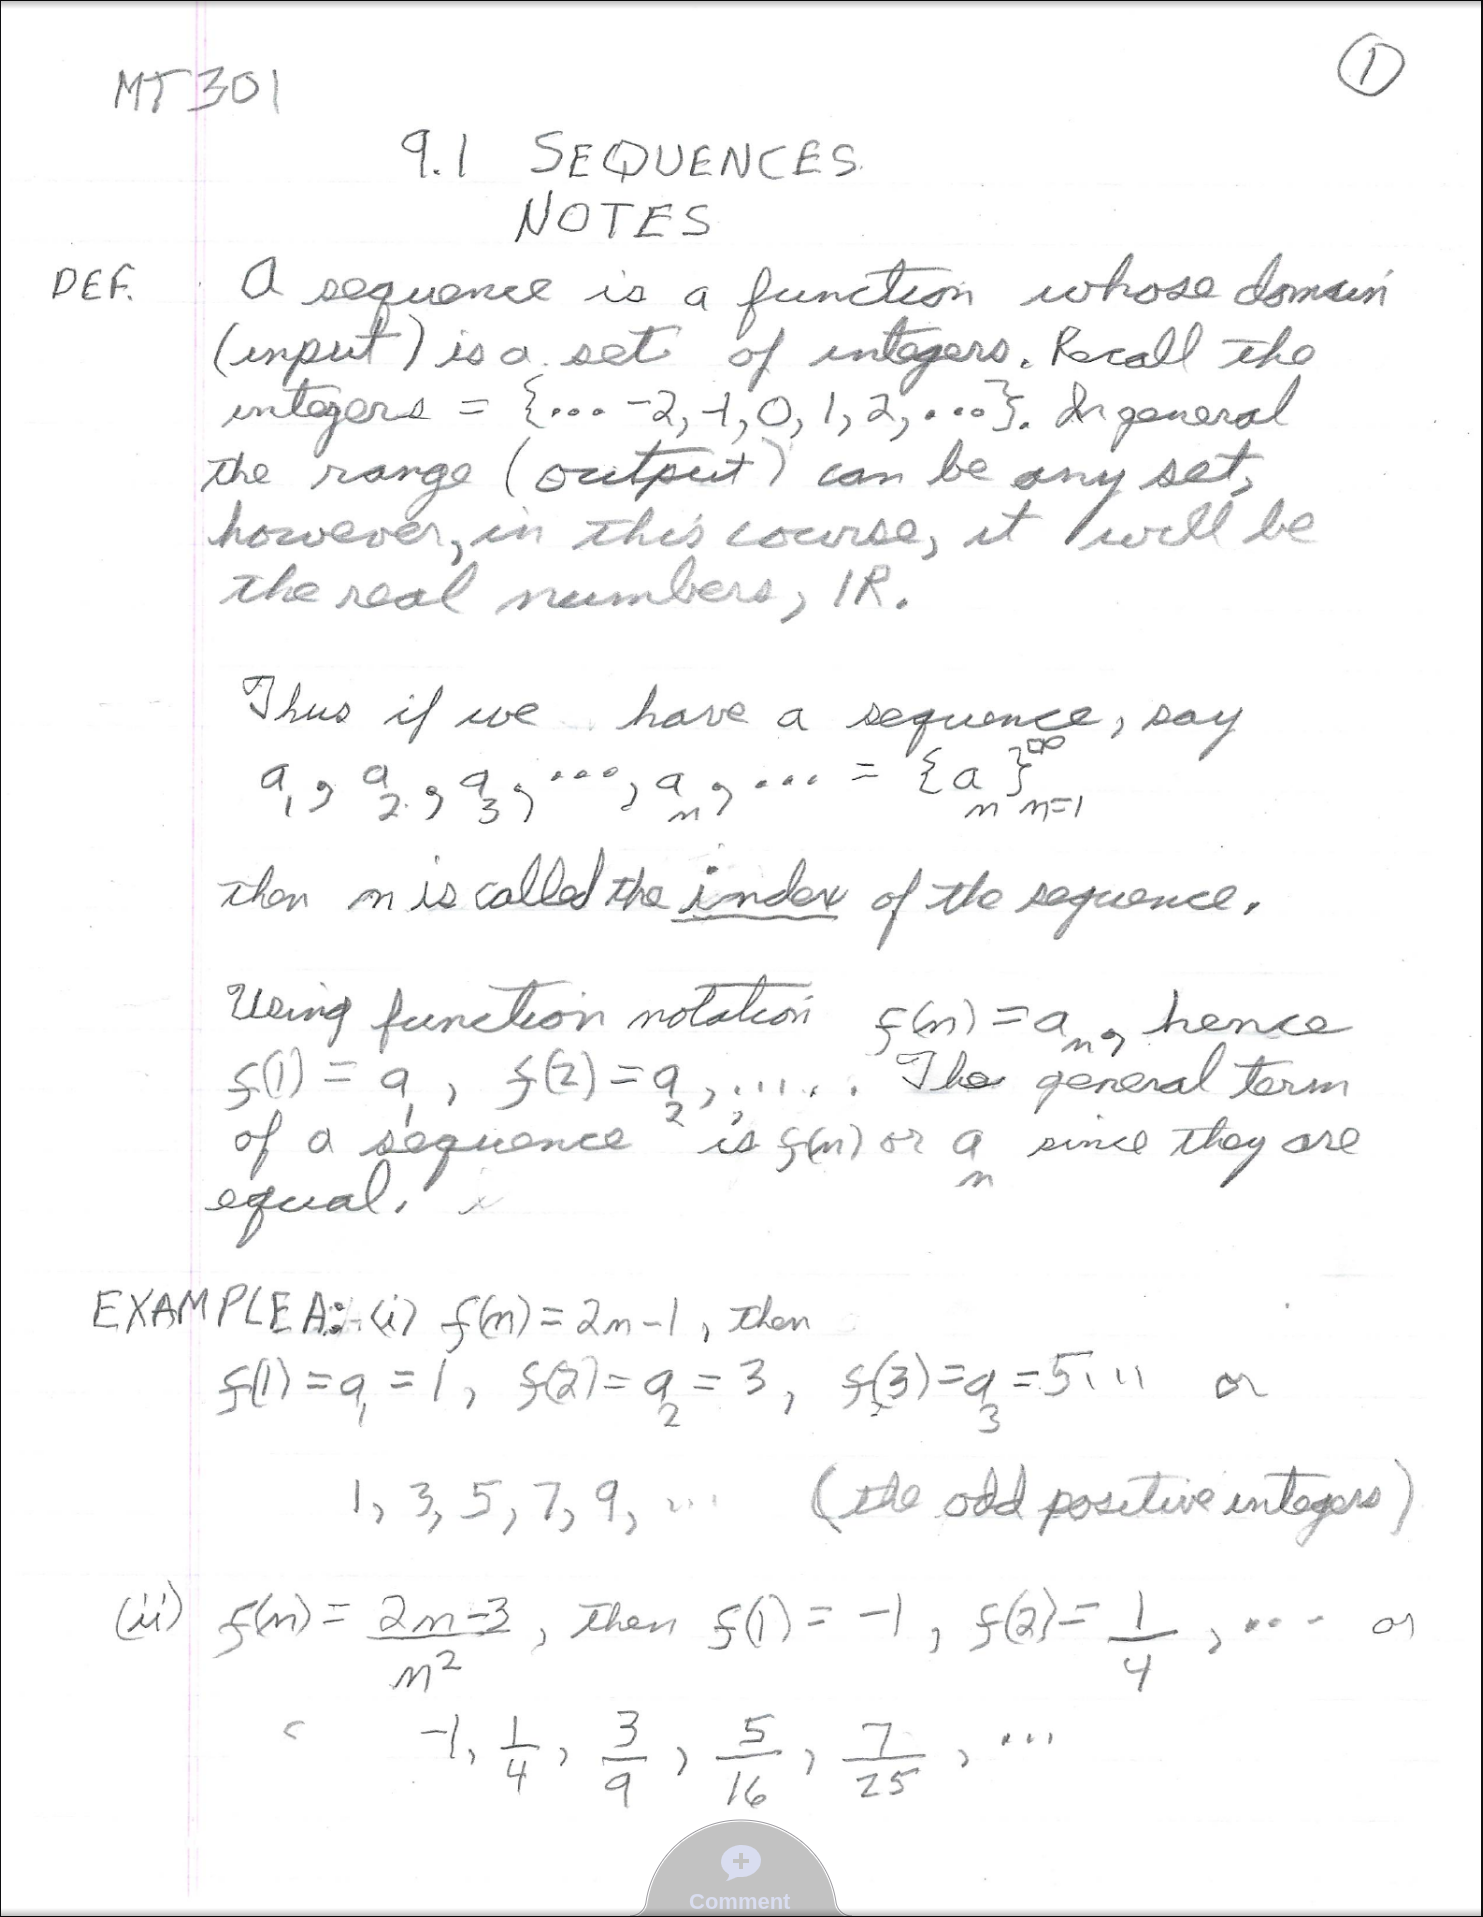 ①
MT301
9.1 SEQUENCES
NOTES
DEF. A sequence is a function whose domain
(input) is a set of integers. Recall the
integers = {... -2, -1, 0, 1, 2, ...}. In general
the range (output) can be any set,
however, in this course, it will be
the real numbers, ℝ.
Thus if we have a sequence, say
a₁, a₂, a₃, ..., aₙ, ... = {aₙ}_{n=1}^∞
then n is called the index of the sequence.
Using function notation f(n) = aₙ, hence
f(1) = a₁, f(2) = a₂, ..... The general term
of a sequence is f(n) or aₙ since they are
equal.
EXAMPLE A: (i) f(n) = 2n-1, then
f(1) = a₁ = 1, f(2) = a₂ = 3, f(3) = a₃ = 5, ... or
1, 3, 5, 7, 9, ... (the odd positive integers)
(ii) f(n) = (2n-3)/n², then f(1) = -1, f(2) = 1/4, ... or
-1, 1/4, 3/9, 5/16, 7/25, ...
Comment